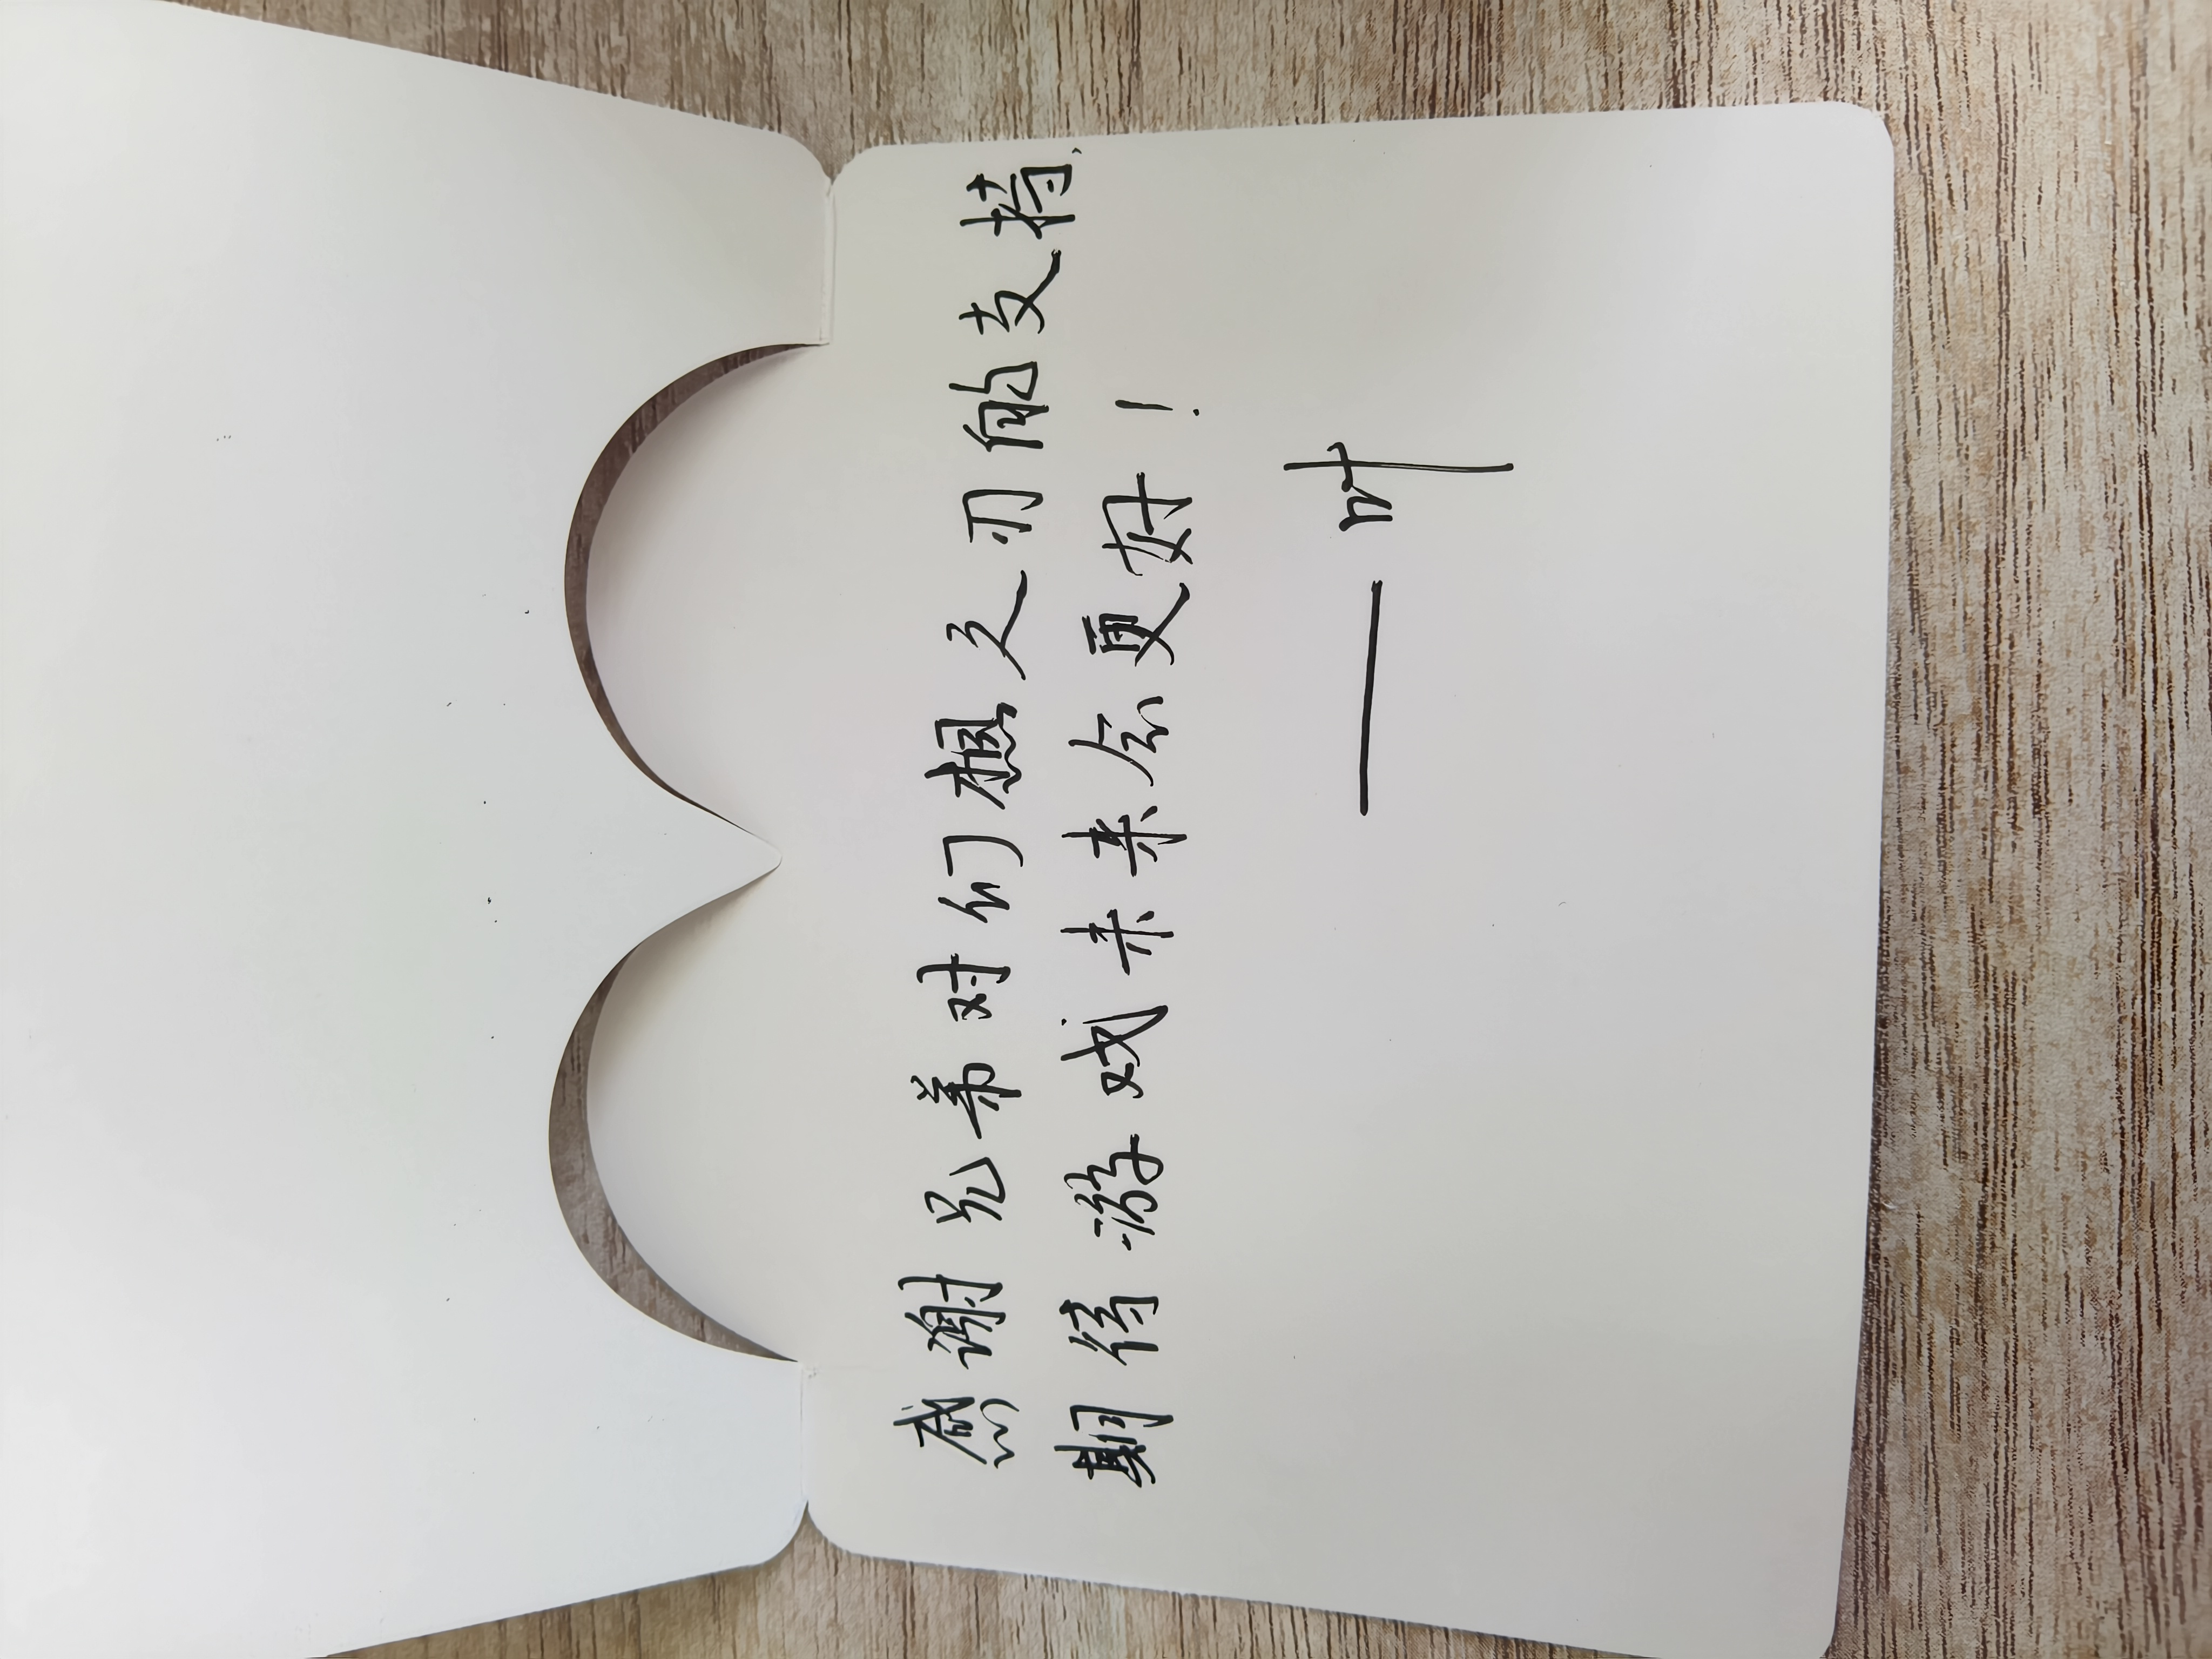 感谢兄弟对们之刃的支持、
期待游戏未来会更好!
—— 叶